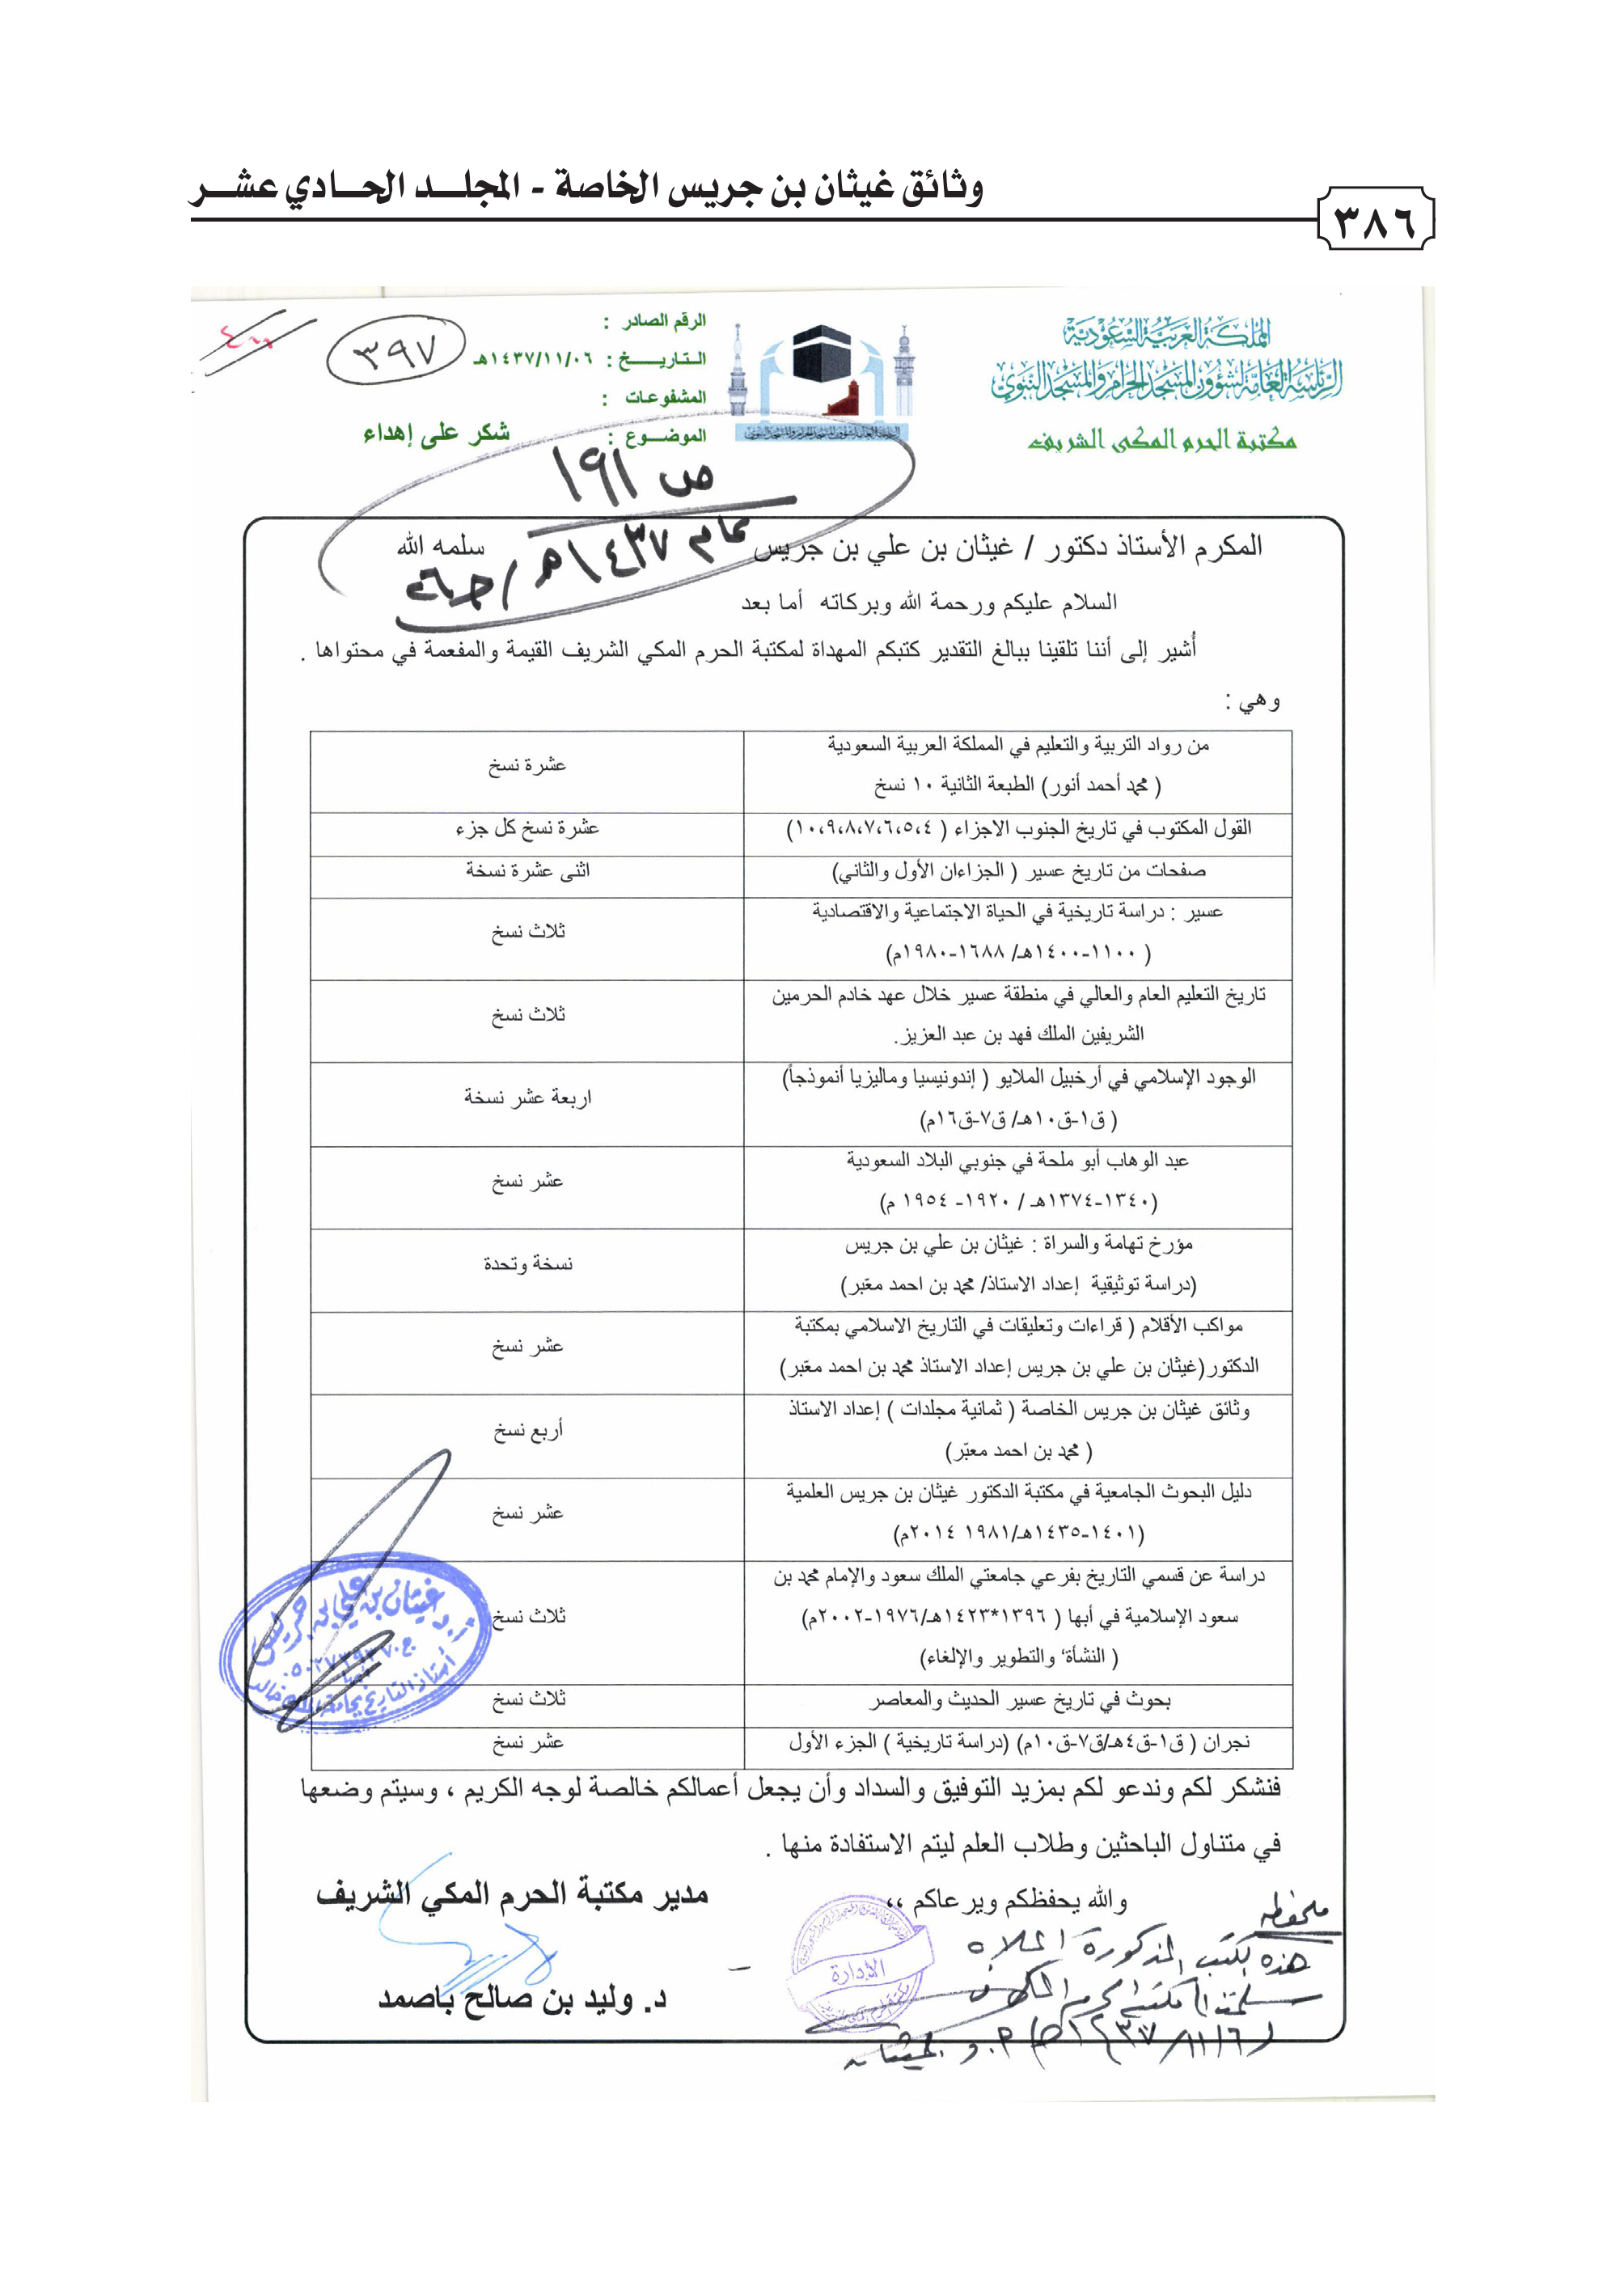 وثائق غيثان بن جريس الخاصة - المجلـــد الحـــادي عشـــر
٣٨٦
المملكة العربية السعودية
الرئاسة العامة لشؤون المسجد الحرام والمسجد النبوي
مكتبة الحرم المكي الشريف
الرقم الصادر :
التاريـــــخ : ١٤٣٧/١١/٠٦هـ
المشفوعـات :
الموضـــوع : شكر على إهداء
٣٩٧
ص ١٩١
عام ١٤٣٧هـ / ج٢
المكرم الأستاذ دكتور / غيثان بن علي بن جريس سلمه الله
السلام عليكم ورحمة الله وبركاته أما بعد
أشير إلى أننا تلقينا ببالغ التقدير كتبكم المهداة لمكتبة الحرم المكي الشريف القيمة والمفعمة في محتواها .
وهي :
من رواد التربية والتعليم في المملكة العربية السعودية
( محمد أحمد أنور) الطبعة الثانية ١٠ نسخ
عشرة نسخ
القول المكتوب في تاريخ الجنوب الاجزاء ( ١٠،٩،٨،٧،٦،٥،٤)
عشرة نسخ كل جزء
صفحات من تاريخ عسير ( الجزاءان الأول والثاني)
اثنى عشرة نسخة
عسير : دراسة تاريخية في الحياة الاجتماعية والاقتصادية
( ١١٠٠-١٤٠٠هـ/ ١٦٨٨-١٩٨٠م)
ثلاث نسخ
تاريخ التعليم العام والعالي في منطقة عسير خلال عهد خادم الحرمين
الشريفين الملك فهد بن عبد العزيز.
ثلاث نسخ
الوجود الإسلامي في أرخبيل الملايو ( إندونيسيا وماليزيا أنموذجاً)
( ق١-ق١٠هـ/ ق٧-ق١٦م)
اربعة عشر نسخة
عبد الوهاب أبو ملحة في جنوبي البلاد السعودية
(١٣٤٠-١٣٧٤هـ / ١٩٢٠- ١٩٥٤ م)
عشر نسخ
مؤرخ تهامة والسراة : غيثان بن علي بن جريس
(دراسة توثيقية إعداد الاستاذ/ محمد بن احمد معّبر)
نسخة وتحدة
مواكب الأقلام ( قراءات وتعليقات في التاريخ الاسلامي بمكتبة
الدكتور(غيثان بن علي بن جريس إعداد الاستاذ محمد بن احمد معّبر)
عشر نسخ
وثائق غيثان بن جريس الخاصة ( ثمانية مجلدات ) إعداد الاستاذ
( محمد بن احمد معبّر)
أربع نسخ
دليل البحوث الجامعية في مكتبة الدكتور غيثان بن جريس العلمية
(١٤٠١-١٤٣٥هـ/١٩٨١ ٢٠١٤م)
عشر نسخ
دراسة عن قسمي التاريخ بفرعي جامعتي الملك سعود والإمام محمد بن
سعود الإسلامية في أبها ( ١٣٩٦*١٤٢٣هـ/١٩٧٦-٢٠٠٢م)
( النشأة، والتطوير والإلغاء)
ثلاث نسخ
بحوث في تاريخ عسير الحديث والمعاصر
ثلاث نسخ
نجران ( ق١-ق٤هـ/ق٧-ق١٠م) (دراسة تاريخية ) الجزء الأول
عشر نسخ
أ.د غيثان بن علي بن جريس
أستاذ التاريخ بجامعة الملك خالد
فنشكر لكم وندعو لكم بمزيد التوفيق والسداد وأن يجعل أعمالكم خالصة لوجه الكريم ، وسيتم وضعها
في متناول الباحثين وطلاب العلم ليتم الاستفادة منها .
والله يحفظكم ويرعاكم ،،
مدير مكتبة الحرم المكي الشريف
د. وليد بن صالح باصمد
الإدارة
ملحوظة
هذه الكتب المذكورة أعلاه